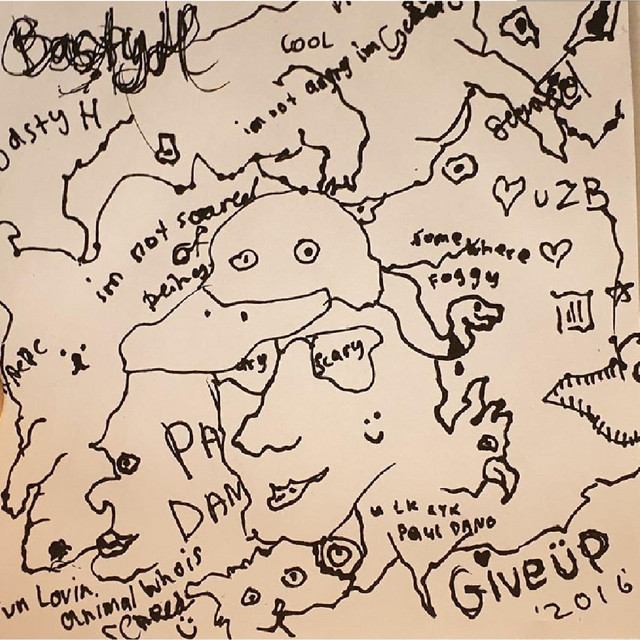 BastyH
COOL
im not angry im
asty H
UZB
im not scared
of
being
somewhere
Foggy
scary
PA
DAM
U LK LYK
PAUL DANO
GiveüP
2016
un Lovin
animal whois